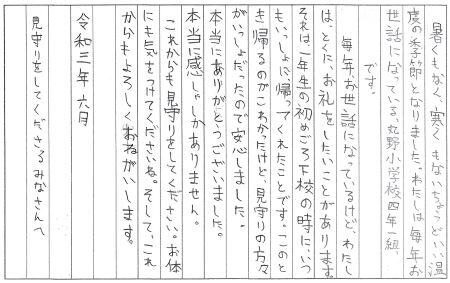 暑くもなく、寒くもないちょうどいい温
度の季節となりました。わたしは毎年お
世話になっている、丸野小学校四年一組、
です。
毎年、お世話になっているけど、わたし
は、とくに、お礼をしたいことがあります。
それは、一年生の初めごろ下校の時に、いつ
もいっしょに帰ってくれたことです。このと
き帰るのがこわかったけど、見守りの方々
がいっしょだったので安心しました。
本当にありがとうございました。
本当に感しゃしかありません。
これからも見守りをしてください。お体
にも気をつけてくださいね。そして、これ
からもよろしくおねがいします。
令和三年六月
見守りをしてくださるみなさんへ